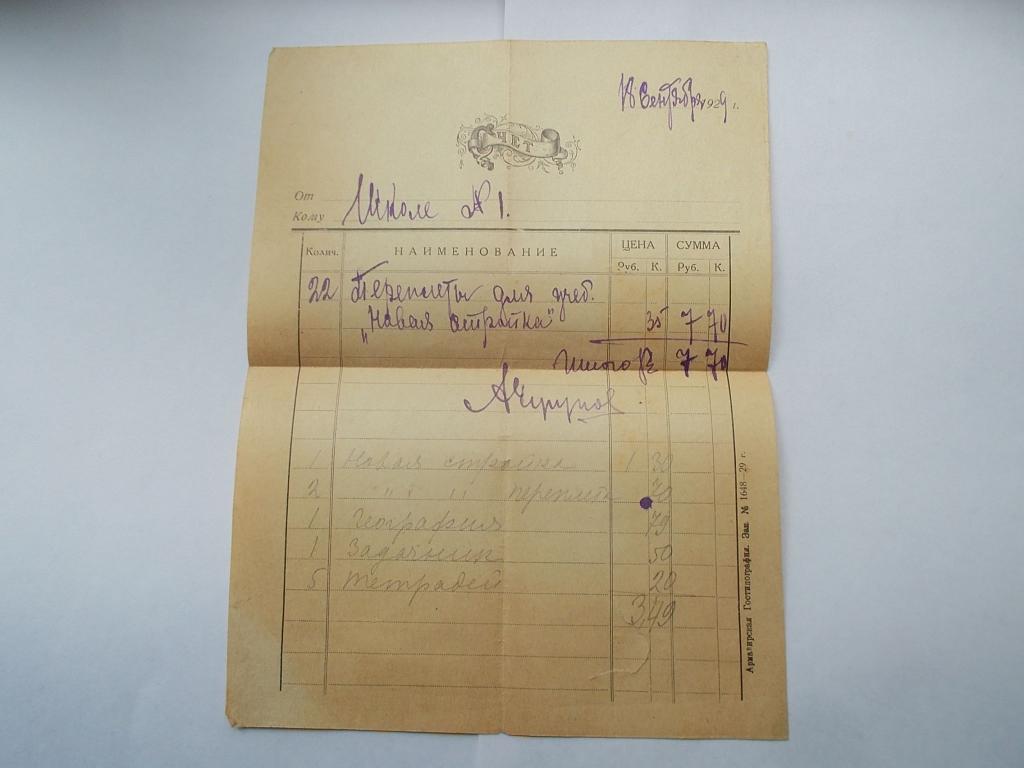 18 Сентября 1929 г.
СЧЕТ
От
Кому Школе № 1.
Колич. НАИМЕНОВАНИЕ ЦЕНА СУММА
Руб. К. Руб. К.
22 Переплеты для учеб.
„Новая стройка" 35 7 70
Итого р. 7 70
1 Новая стройка 1 30
2 " " " переплета 70
1 География 79
1 Задачник 50
5 тетрадей 20
3,49
Армавирская Гостипография. Зак. № 1648—29 г.